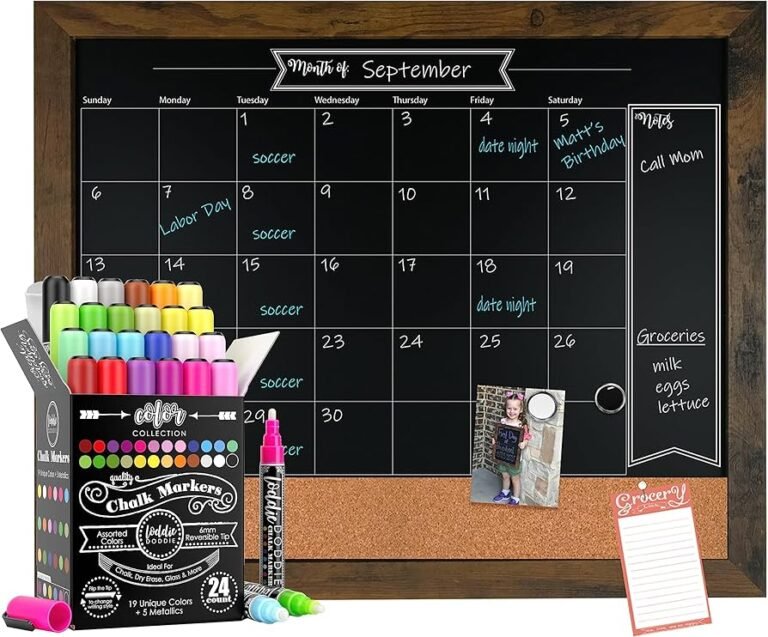 Month of: September
Sunday Monday Tuesday Wednesday Thursday Friday Saturday
1 2 3 4 5
soccer date night Matt's
Birthday
6 7 8 9 10 11 12
Labor Day
soccer
13 14 15 16 17 18 19
soccer date night
23 24 25 26
soccer
29 30
soccer
Notes
Call Mom
Groceries
milk
eggs
lettuce
GROCERY
color
COLLECTION
Chalk Markers
19 Unique Colors + 5 Metallics
quality
Chalk Markers
Assorted
Colors
loddie
DODDIE
6mm
Reversible Tip
Ideal For
Chalk, Dry Erase, Glass & More
Flip the Tip
to change
writing style
19 Unique Colors
+ 5 Metallics
24
count
loddie DODDIE
CHALK MARKER
First Day